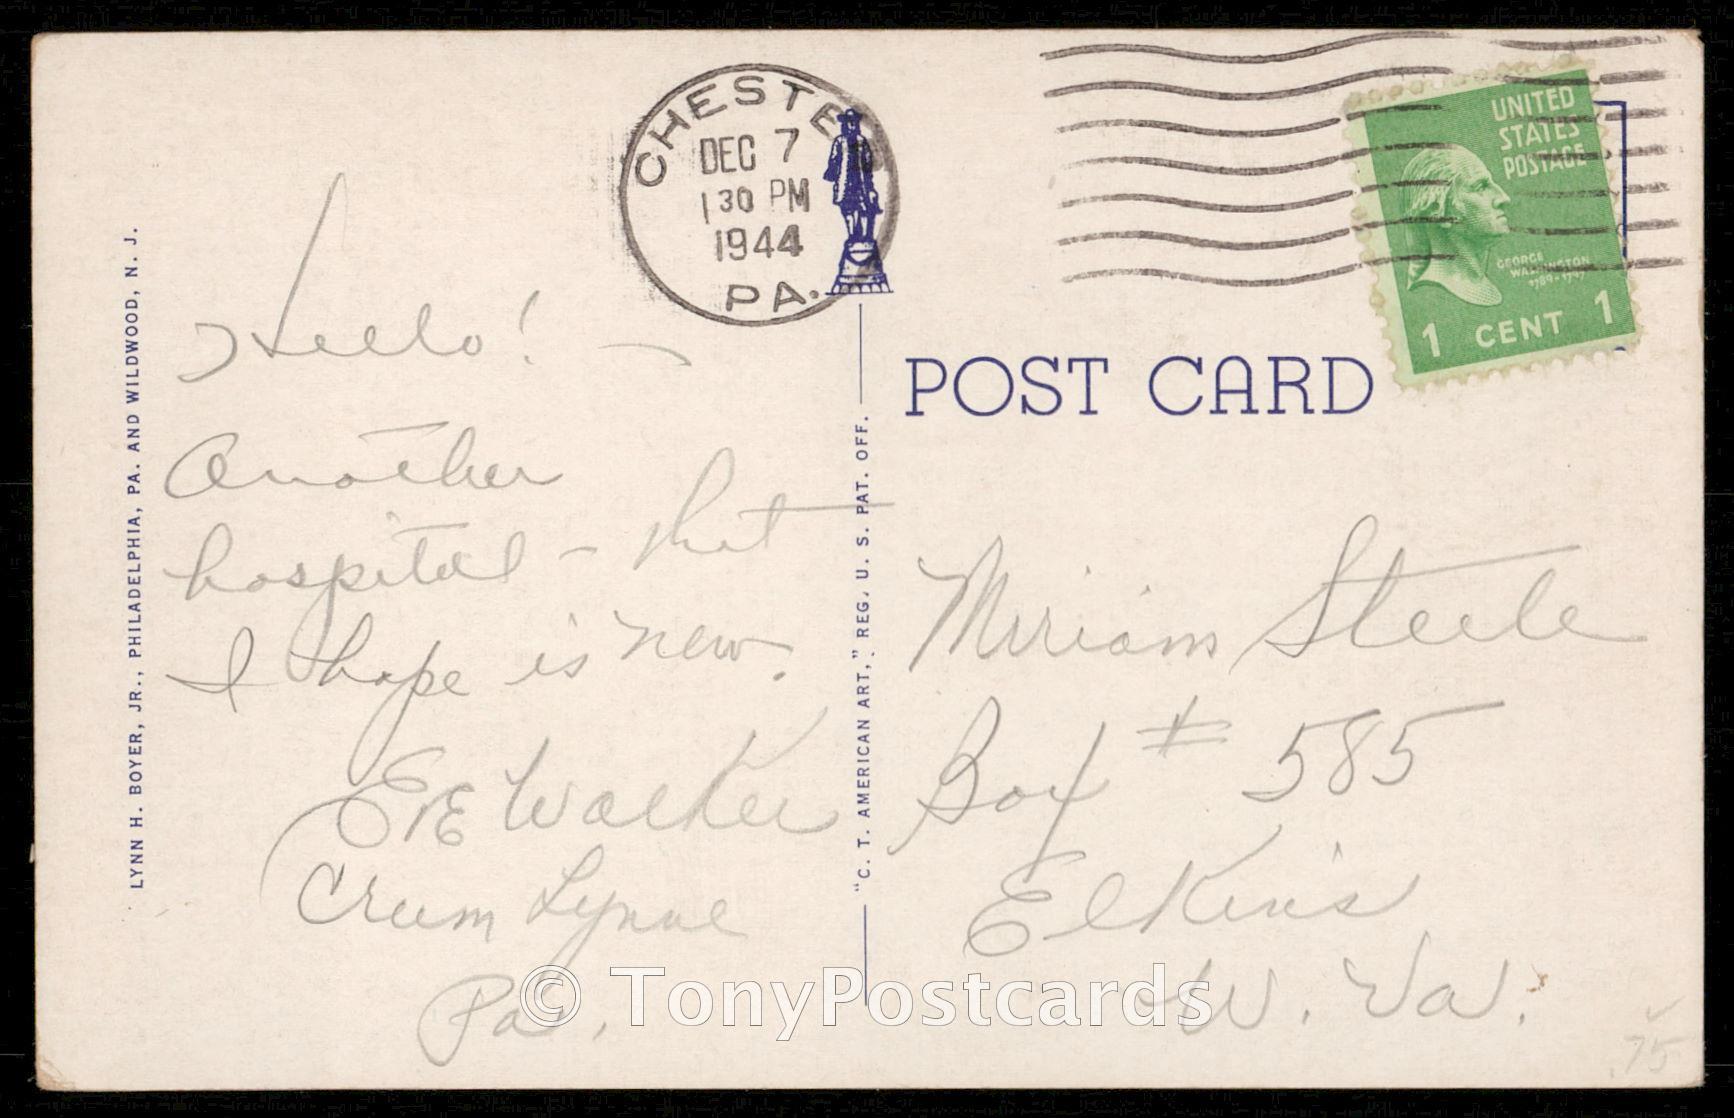 LYNN H. BOYER, JR., PHILADELPHIA, PA. AND WILDWOOD, N. J.
Hello! —
Another
hospital – that
I hope is new.
Eve Walker
Crum Lynne
Pa.
CHESTER
DEC 7
1 30 PM
1944
PA.
"C. T. AMERICAN ART," REG. U. S. PAT. OFF.
UNITED
STATES
POSTAGE
GEORGE
WASHINGTON
1789-1797
1 CENT 1
POST CARD
Miriam Steele
Box # 585
Elkins
W. Va.
.75
© TonyPostcards